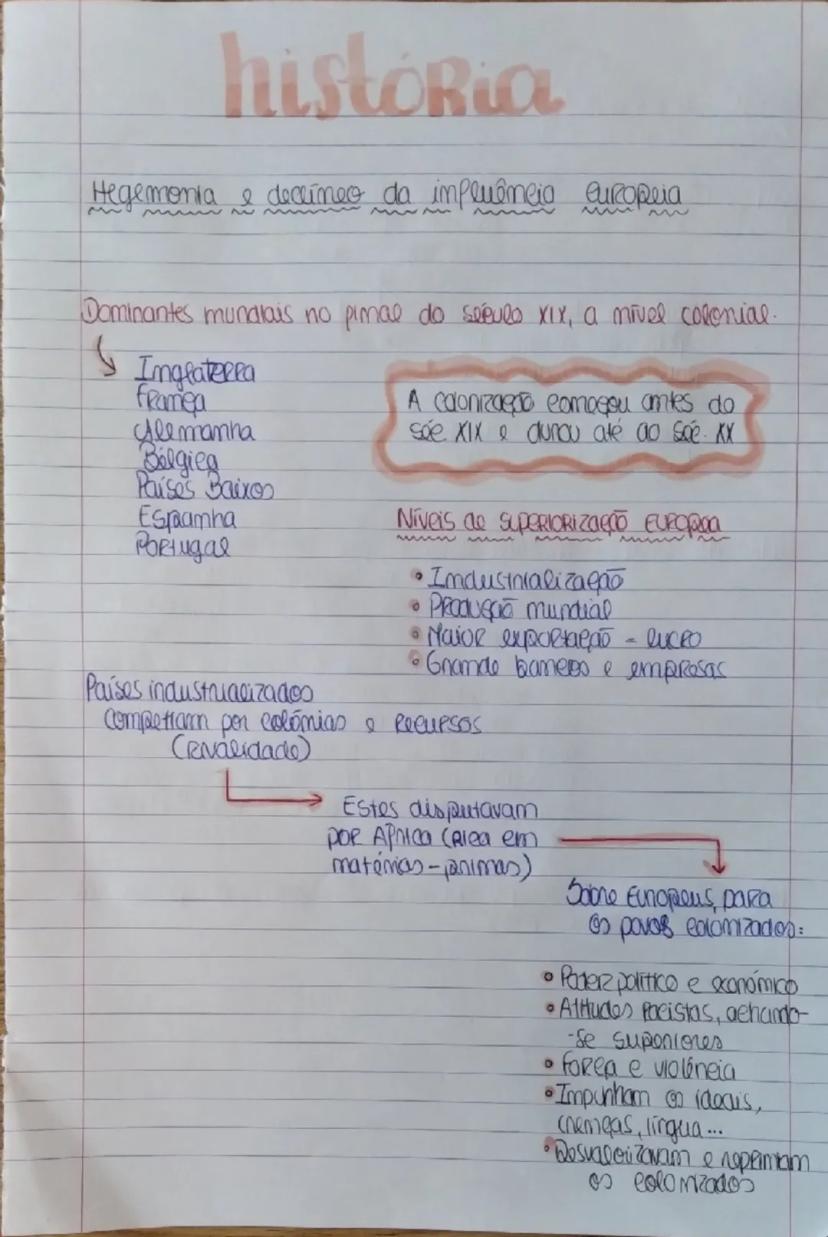 história
Hegemonia e declíneo da influência europeia
Dominantes mundiais no final do século XIX, a nível colonial.
Inglaterra
França
Alemanha
Bélgica
Países Baixos
Espanha
Portugal
A colonização começou antes do
séc. XIX e durou até ao séc. XX
Níveis de superiorização europeia
• Industrialização
• Produção mundial
• Maior exportação - lucro
• Grande bancos e empresas
Países industrializados
competiam por colónias e recursos
(rivalidade)
Estes disputavam
por África (rica em
matérias-primas)
Sobre Europeus, para
os povos colonizados:
• Poder político e económico
• Atitudes racistas, achando-
-se superiores
• Força e violência
• Impunham os ideais,
crenças, língua...
• Desvalorizavam e reprimiam
os colonizados